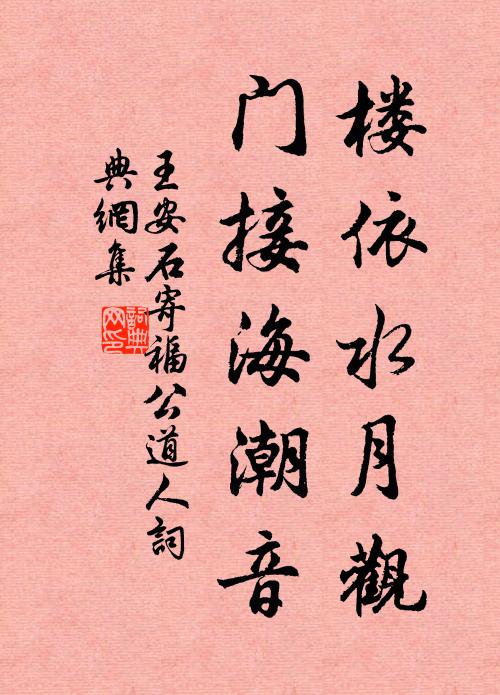 楼依水月觀
门接海潮音
王安石寄福公道人詞
典網集
詞典网印